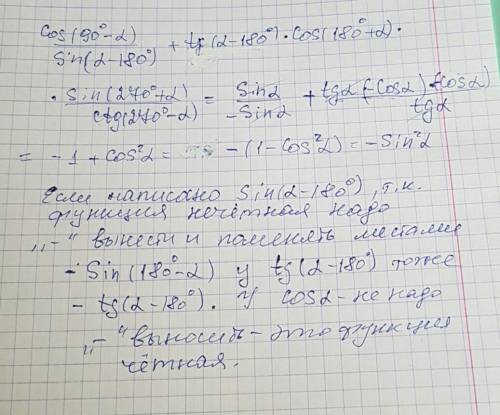 cos(90°-α)/sin(α-180°) + tg(α-180°)·cos(180°+α)·
· sin(270°+α)/ctg(270°-α) = sinα/-sinα + tgα(-cosα)(-cosα)/tgα
= -1 + cos²α = -(1-cos²α) = -sin²α
Если написано sin(α-180°), т.к.
функция нечётная надо
„-“ вынести и поменять местами
- sin(180°-α) у tg(α-180°) тоже
- tg(α-180°). У cosα - не надо
„-“ выносить - это функция
чётная.